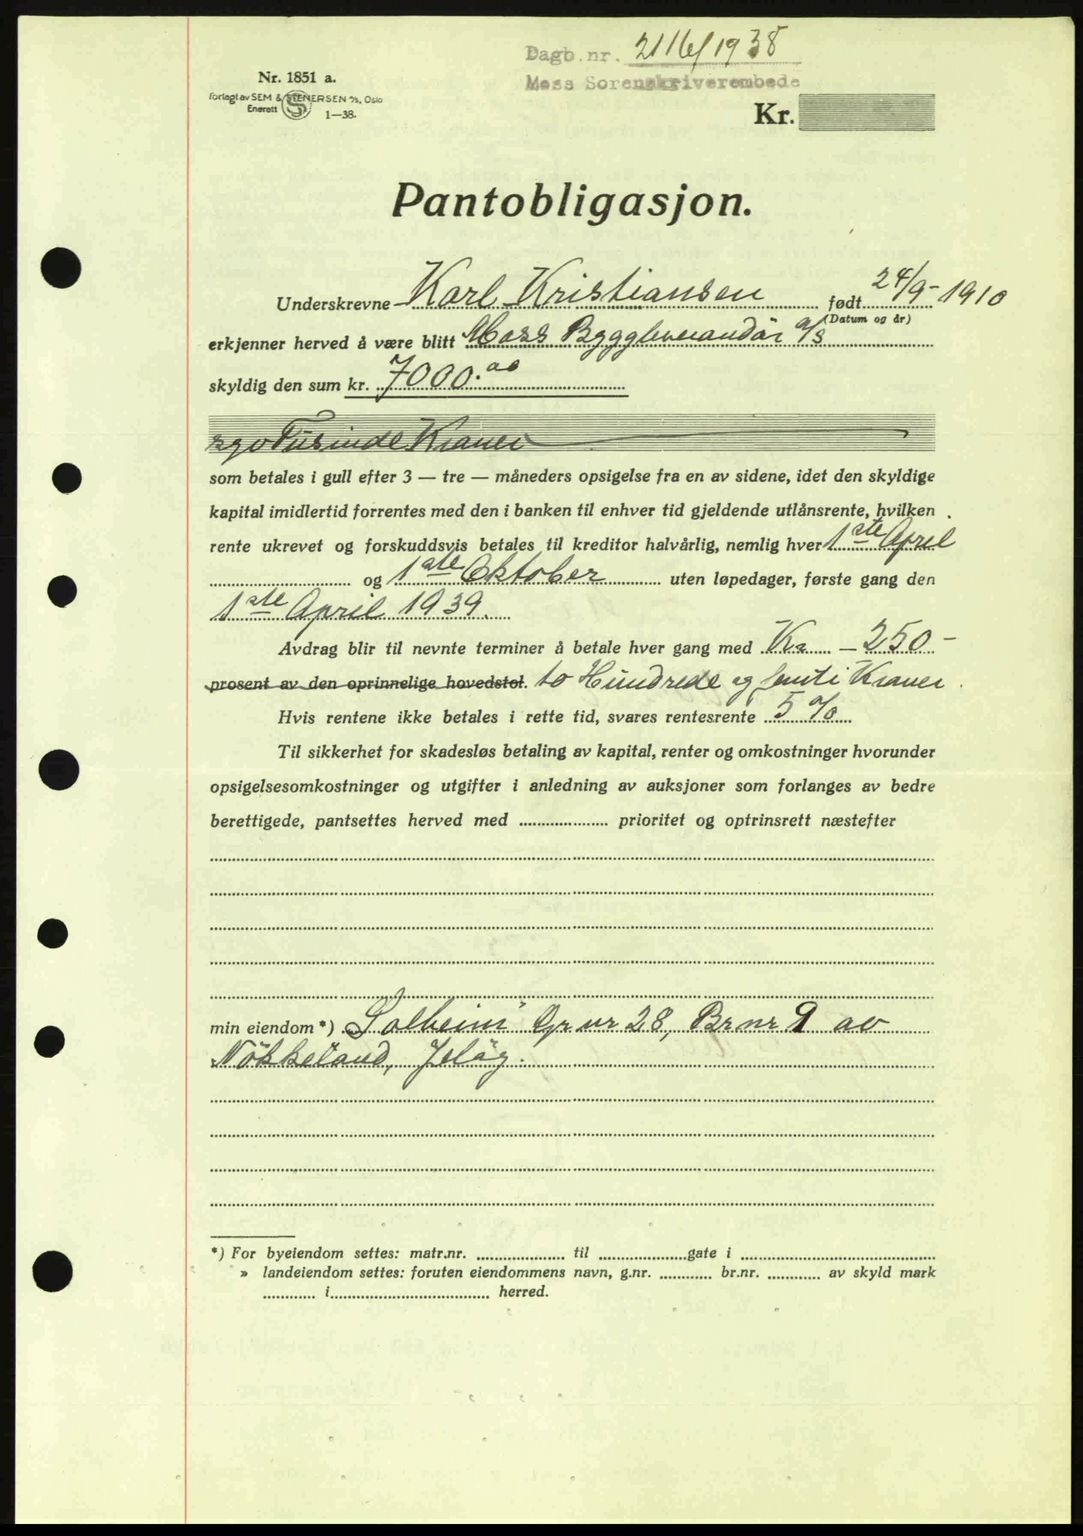 Dagb.nr. 2116/1938
Moss Sorenskriverembede
Nr. 1851 a.
Forlagt av SEM & STENERSEN A/S, Oslo
Enerett
1—38.
Kr.
Pantobligasjon.
Underskrevne Karl Kristiansen født 24/9-1910
(Datum og år)
erkjenner herved å være blitt Moss Byggleverandör A/S
skyldig den sum kr. 7000.00
syv Tusinde Kroner
som betales i gull efter 3 — tre — måneders opsigelse fra en av sidene, idet den skyldige
kapital imidlertid forrentes med den i banken til enhver tid gjeldende utlånsrente, hvilken
rente ukrevet og forskuddsvis betales til kreditor halvårlig, nemlig hver 1ste April
og 1ste Oktober uten løpedager, første gang den
1ste April 1939.
Avdrag blir til nevnte terminer å betale hver gang med Kr — 250 –
prosent av den oprinnelige hovedstol. to Hundrede og femti Kroner.
Hvis rentene ikke betales i rette tid, svares rentesrente 5 %
Til sikkerhet for skadesløs betaling av kapital, renter og omkostninger hvorunder
opsigelsesomkostninger og utgifter i anledning av auksjoner som forlanges av bedre
berettigede, pantsettes herved med prioritet og optrinsrett næstefter
min eiendom *) „Solheim" Gr nr 28, Br nr 9 av
Nökkeland, Jelöy.
*) For byeiendom settes: matr.nr. til gate i
» landeiendom settes: foruten eiendommens navn, g.nr. br.nr. av skyld mark
i herred.